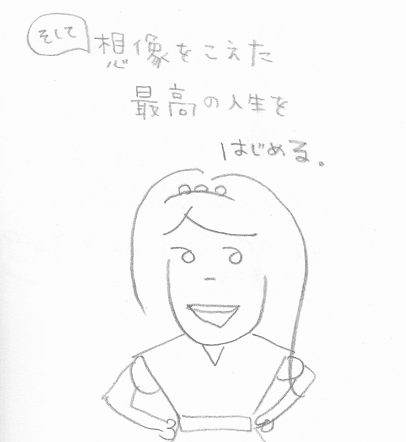 そして
想像をこえた
最高の人生を
はじめる。